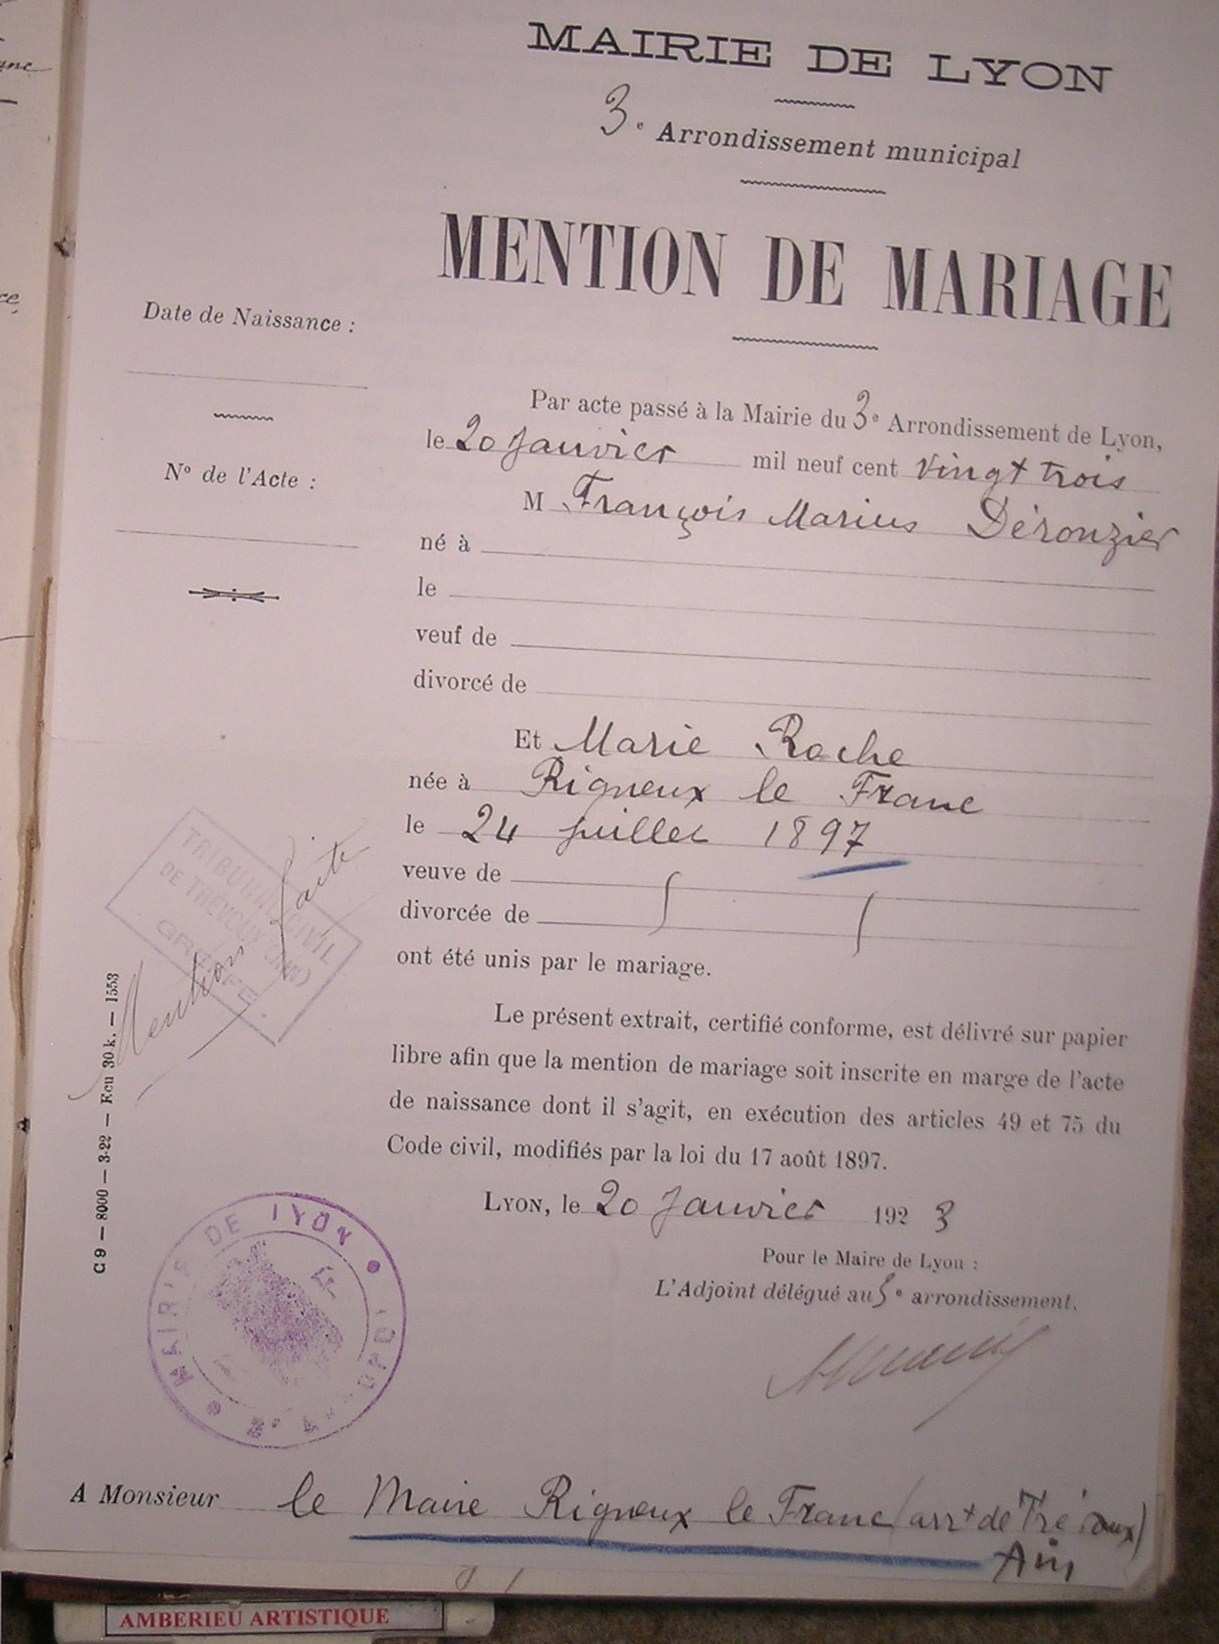 MAIRIE DE LYON
3e Arrondissement municipal
MENTION DE MARIAGE
Date de Naissance :
N° de l'Acte :
Par acte passé à la Mairie du 3e Arrondissement de Lyon,
le 20 Janvier mil neuf cent vingt trois
M François Marius Déronzier
né à
le
veuf de
divorcé de
Et Marie Roche
née à Rigneux le Franc
le 24 Juillet 1897
veuve de
divorcée de
ont été unis par le mariage.
Le présent extrait, certifié conforme, est délivré sur papier
libre afin que la mention de mariage soit inscrite en marge de l'acte
de naissance dont il s'agit, en exécution des articles 49 et 75 du
Code civil, modifiés par la loi du 17 août 1897.
Lyon, le 20 Janvier 1923
Pour le Maire de Lyon :
L'Adjoint délégué au 3e arrondissement,
A Monsieur le Maire Rigneux le Franc (arrt de Trévoux)
Ain
TRIBUNAL CIVIL
DE TRÉVOUX (AIN)
GREFFE.
Mention faite
C 9 — 8000 — 3-22 — Ecu 30 k. — 1553
MAIRIE DE LYON
AMBERIEU ARTISTIQUE